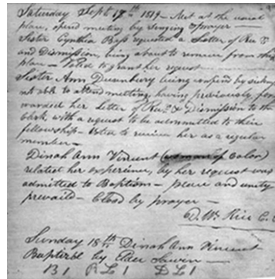 Saturday Sept 17th 1819 - Met at the usual
place, opend meeting by singing & prayer
Sister Cynthia requested a Letter of Rec &
and Dismission being about to remove from this
place - Voted to grant her request
Sister Ann being confined by sickness
not able to attend meeting having previously for
warded her Letter of Rec. & Dismission to the
Clerk with a request to be admitted to their
fellowship - Voted to receive her as a regular
member -
Dinah Ann Vincent (woman of Color)
related her experience, by her request was
admitted to Baptism - peace and unity
prevaild - Closd by prayer -
D. W. C.C.
Sunday 18th Dinah Ann Vincent
Baptisd by Elder
B 1 R L 1 D L 1